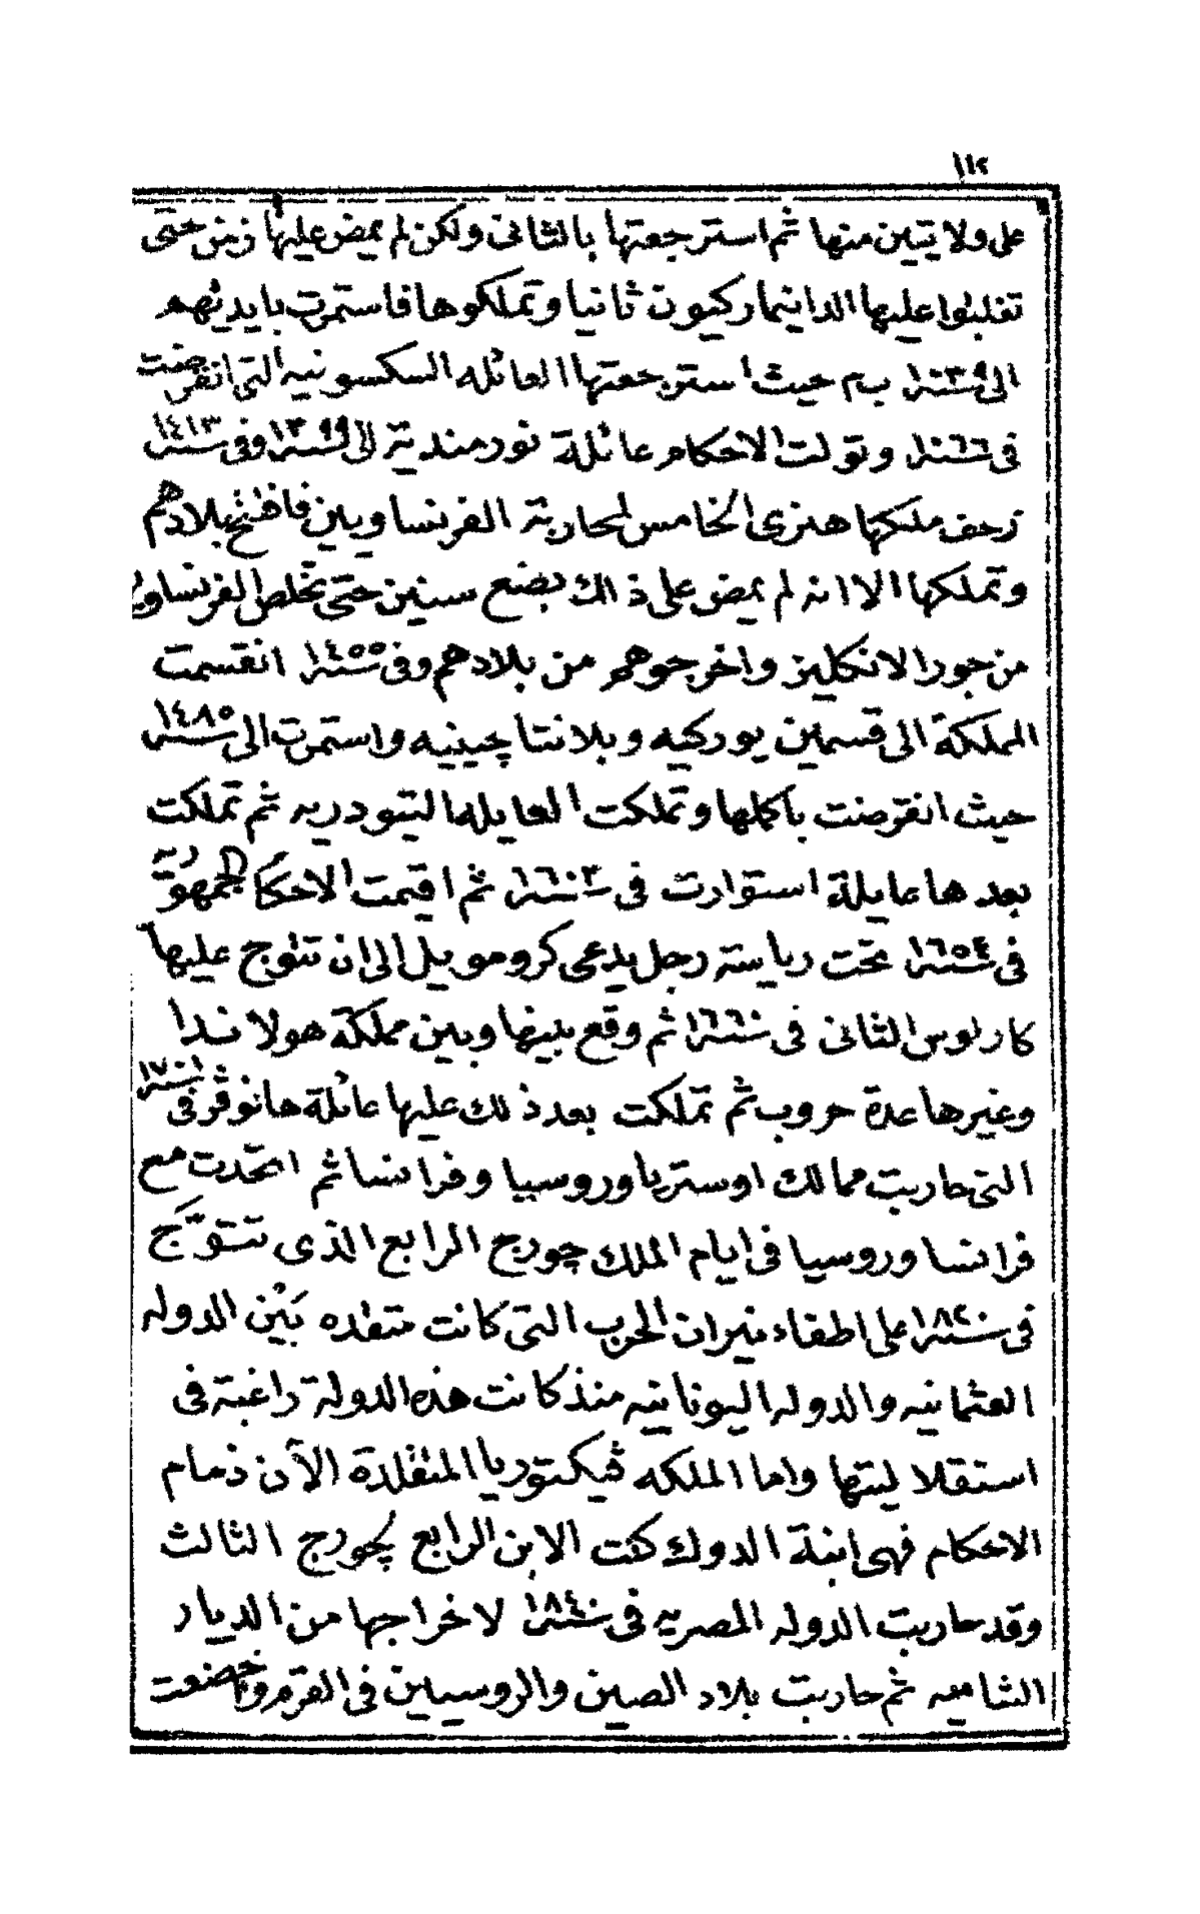 ١١٢
على ولايتين منها ثم استرجعتها بالثانى ولكن لم يمض عليها زمن حتى
تغلبوا عليها الدانيماركيون ثانيا وتملكوها فاستمرت بايديهم
الى سنة ١٠٣٩ ب م حيث استرجعتها العائله السكسونيه التى انقرضت
فى سنة ١٠٦٦ وتولت الاحكام عائلة نورمندية الى سنة ١٣٩٩ وفى سنة ١٤١٣
زحف ملكها هنرى الخامس لمحاربة الفرنساويين فافتتح بلادهم
وتملكها الا انه لم يمض على ذالك بضع سنين حتى تخلص الفرنساويون
من جور الانكليز واخرجوهم من بلادهم وفى سنة ١٤٥٥ انقسمت
المملكة الى قسمين يوركيه وبلانتاچينيه واستمرت الى سنة ١٤٨٥
حيث انقرضت باكملها وتملكت العايله التيودريه ثم تملكت
بعدها عايلة استوارت فى سنة ١٦٠٣ ثم اقيمت الاحكام الجمهوريّة
فى سنة ١٦٥٤ تحت رياسة رجل يدعى كرومويل الى ان تتوج عليها
كارلوس الثانى فى سنة ١٦٦٠ ثم وقع بينها وبين مملكة هولاندا
وغيرها عدة حروب ثم تملكت بعد ذلك عليها عائلة هانوڤر فى سنة ١٧٠١
التى حاربت ممالك اوستريا وروسيا وفرانسا ثم اتحدت مع
فرانسا وروسيا فى ايام الملك چورج الرابع الذى تتوّج
فى سنة ١٨٢٠ على اطفاء نيران الحرب التى كانت متقده بين الدوله
العثمانيه والدوله اليونانيه منذ كانت هذه الدولة راغبة فى
استقلاليتها واما الملكه ڤيكتوريا المتقلدة الآن زمام
الاحكام فهى ابنة الدوك كنت الابن الرابع لچورج الثالث
وقد حاربت الدوله المصريه فى سنة ١٨٤٠ لاخراجها من الديار
الشاميه ثم حاربت بلاد الصين والروسيين فى القرم واخضعت